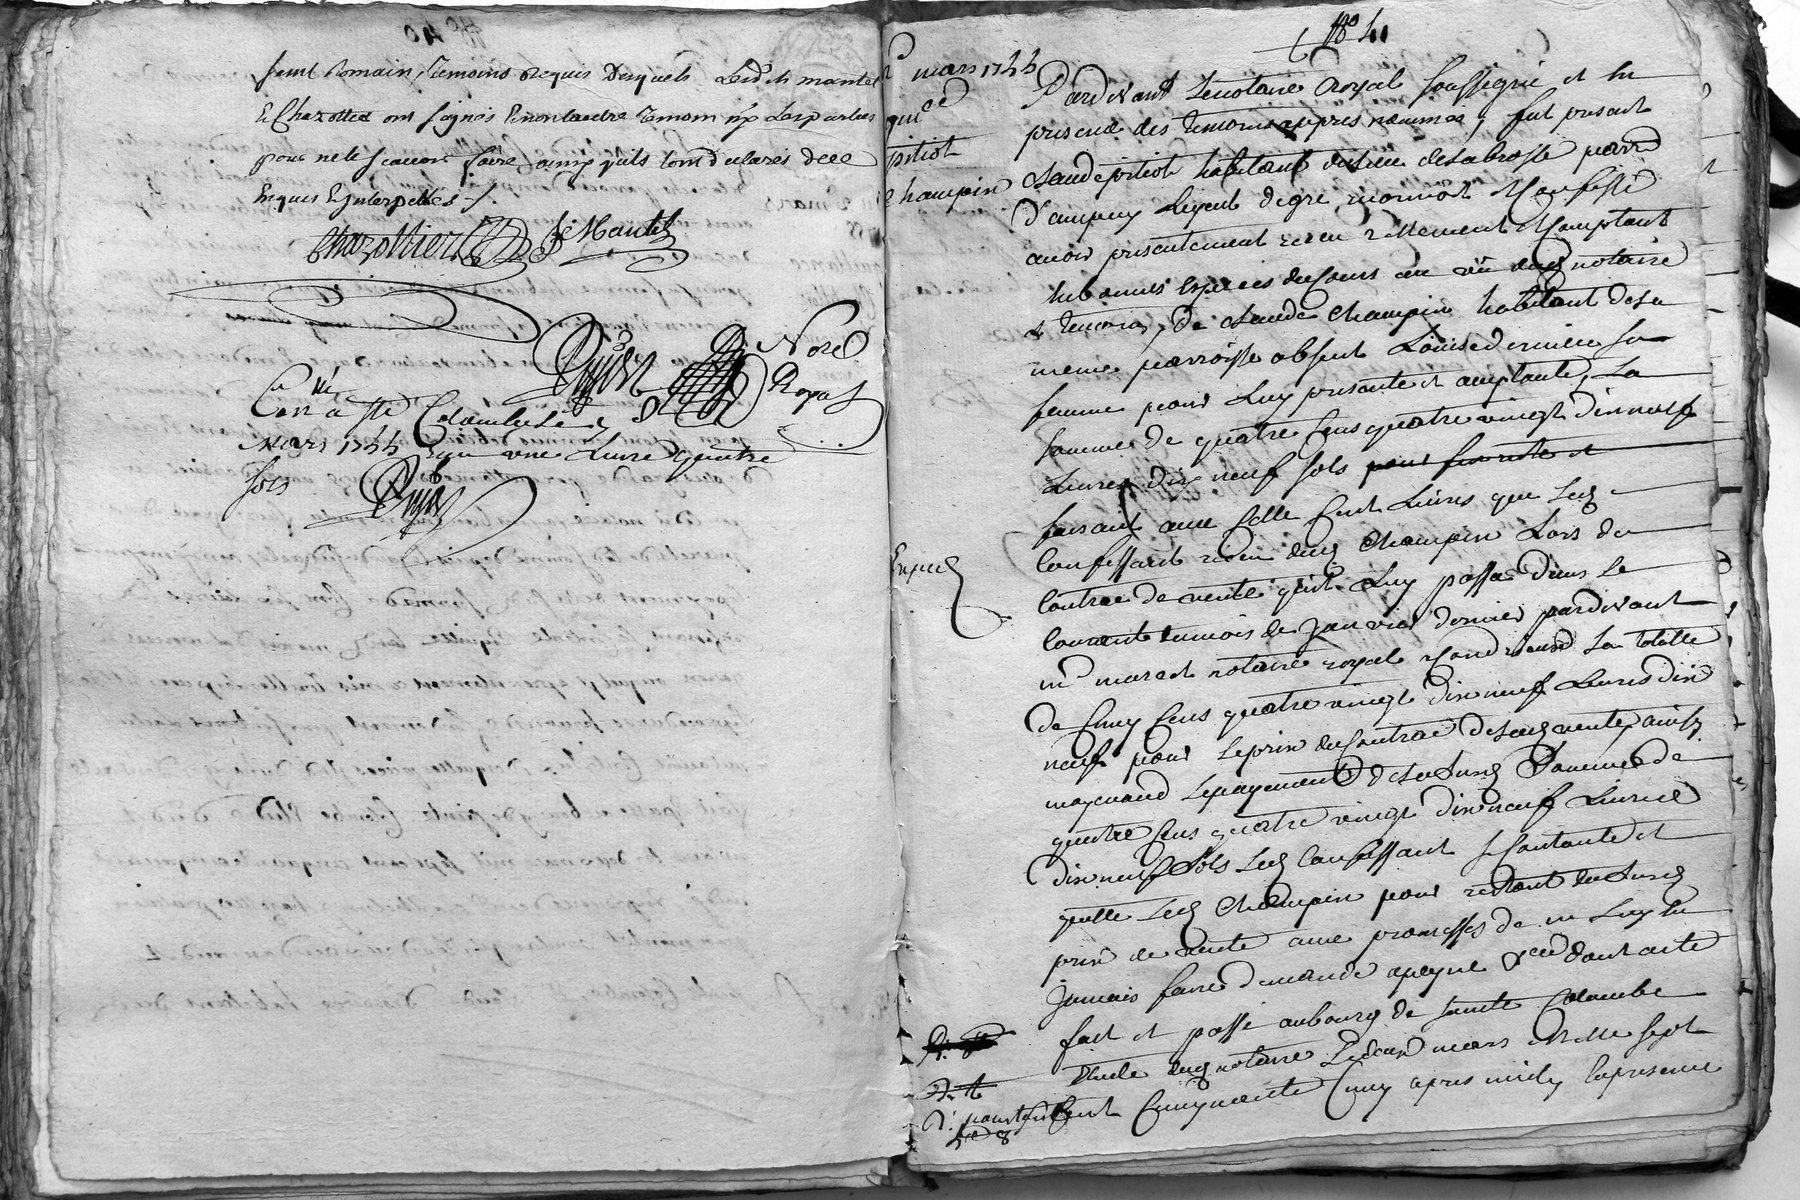 saint Romain, temoins requis desquels led. s. mantel
& Chazottier ont signés & non l'autre temoin ny les parties
pour ne le scavoir faire ainsy quils l'ont declarés de ce
Enquis & Interpellés
Chazottier
J. Mantel
Dujast
Nore
Royal
Con.lé a Ste Colombe le 5
Mars 1755 reçu une Livre quatre
sols
Dujast
N° 41
mars 1755
quit.ce
pitiot
champin
Pardevant le notaire Royal soussigné et en
presence des temoins appres nommes, fut present
claude pitiot habitant du lieu de la brosse parr.
d'ampuy lequel de gre reconnoit & confesse
avoir presentement receu reellement & comptant
en bonnes especes du cours au vû dud. notaire
& temoins, de claude champin habitant de la
meme parroisse absent Louise dervieu sa
femme pour luy presente et acceptante, La
somme de quatre cens quatre vingt dix neuf
Livres dix neuf sols pour
faisant avec celle cent Livres que led.
confessant receu dud. champin Lors du
contrac de vente quil luy passa dans le
courant du mois de janvier dernier pardevant
me notaire royal la totalle
de cinq cens quatre vingt dix neuf Livres dix
neuf pour le prix du contrac de lad. vente, ainsy
moyenant le payement de la susd. somme de
quatre cens quatre vingt dix neuf Livres
dix neuf sols led. confessant se contante et
quitte led. champin pour restant du susd.
prix de vente avec promesses de ne luy en
jamais faire demande a peyne &cee dont acte
fait et passé au bourg de sainte Colombe
etude dud. notaire le deux mars mille sept
cent cinquante cinq apres midy en presence